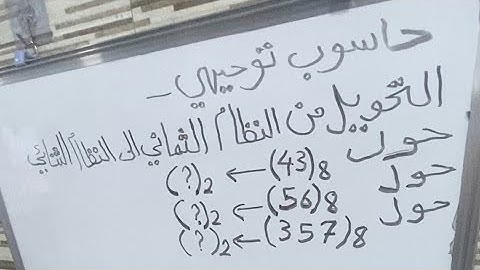 حاسوب توجيهي -
التحويل من النظام الثماني الى النظام الثنائي
حول (43)8 ← (?)2
حول (56)8 ← (?)2
حول (357)8 ← (?)2